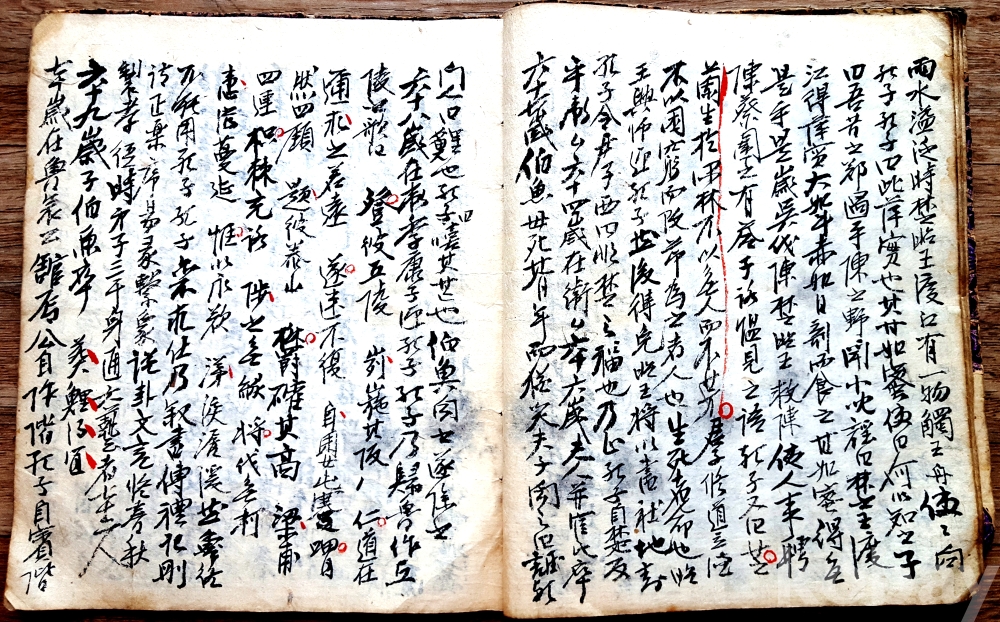 雨水溢泛時楚昭王渡江有一物觸王舟使〻問
孔子孔子曰此萍實也其甘如蜜使曰何以知之子
曰吾昔之鄭過乎陳之野聞小兒謠曰楚王渡
江得萍實大如斗赤如日剖而食之甘如蜜得無
是乎是歲吳伐陳楚昭王救陳使人來聘
陳蔡圍之有子路慍見之語孔子又曰芝
蘭生於深林不以無人而不芳君子修道立德
不以困窮而改節為之者人也生死者命也昭
王興師迎孔子然後得免昭王將以書社地封
孔子令尹子西曰非楚之福也乃止孔子自楚反
乎衛公六十四歲在衛六十六歲夫人幵官氏卒
六十七歲伯魚母死朞年而猶哭夫子聞之曰誰歟
門人曰鯉也孔子曰嘻其甚也伯魚聞之遂除之
六十八歲在衛季康子迎孔子孔子乃歸魯作丘
陵之歌曰 登彼丘陵 峛崺其阪 仁道在
邇求之若遠 遂迷不復 自嬰屯蹇 喟
然回顧 題彼泰山 欝確其高 梁甫
回連 枳棘充路 陟之無緣 將伐無柯
患茲蔓延 惟以永歎 涕淚潺湲 然魯終
不能用孔子孔子亦不求仕乃叙書傳禮記刪
詩正樂序易彖繫象說卦文言修春秋
製孝經時弟子三千身通六藝者七十二人
六十九歲子伯魚卒 葬鯉
七十歲在魯哀公舘焉公自阼階孔子自賓階